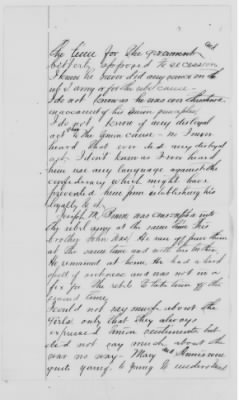 The time for the government and
bitterly opposed to secession
I know he never did any service in the
reb army or for the rebel cause –
I do not know as he was ever threatened
on account of his Union principles
I do not know of any disloyal
act to the Union cause – nor I never
heard that ever did any disloyal
act. I don't know as I ever heard
him use any language against the
confederacy which might have
prevented him from establishing his
loyalty to it.
Joseph M. was conscripted into
the rebel army at the same time his
brother John was. He run off from them
at the same time and with his brother.
He remained at home. He had a hard
spell of sickness and was not in a
fix for the rebels to take him off the
second time.
I could not say much about the
girls only that they always
expressed Union sentiments but
did not say much about the
war no way – Mary and
quite young to young to understand